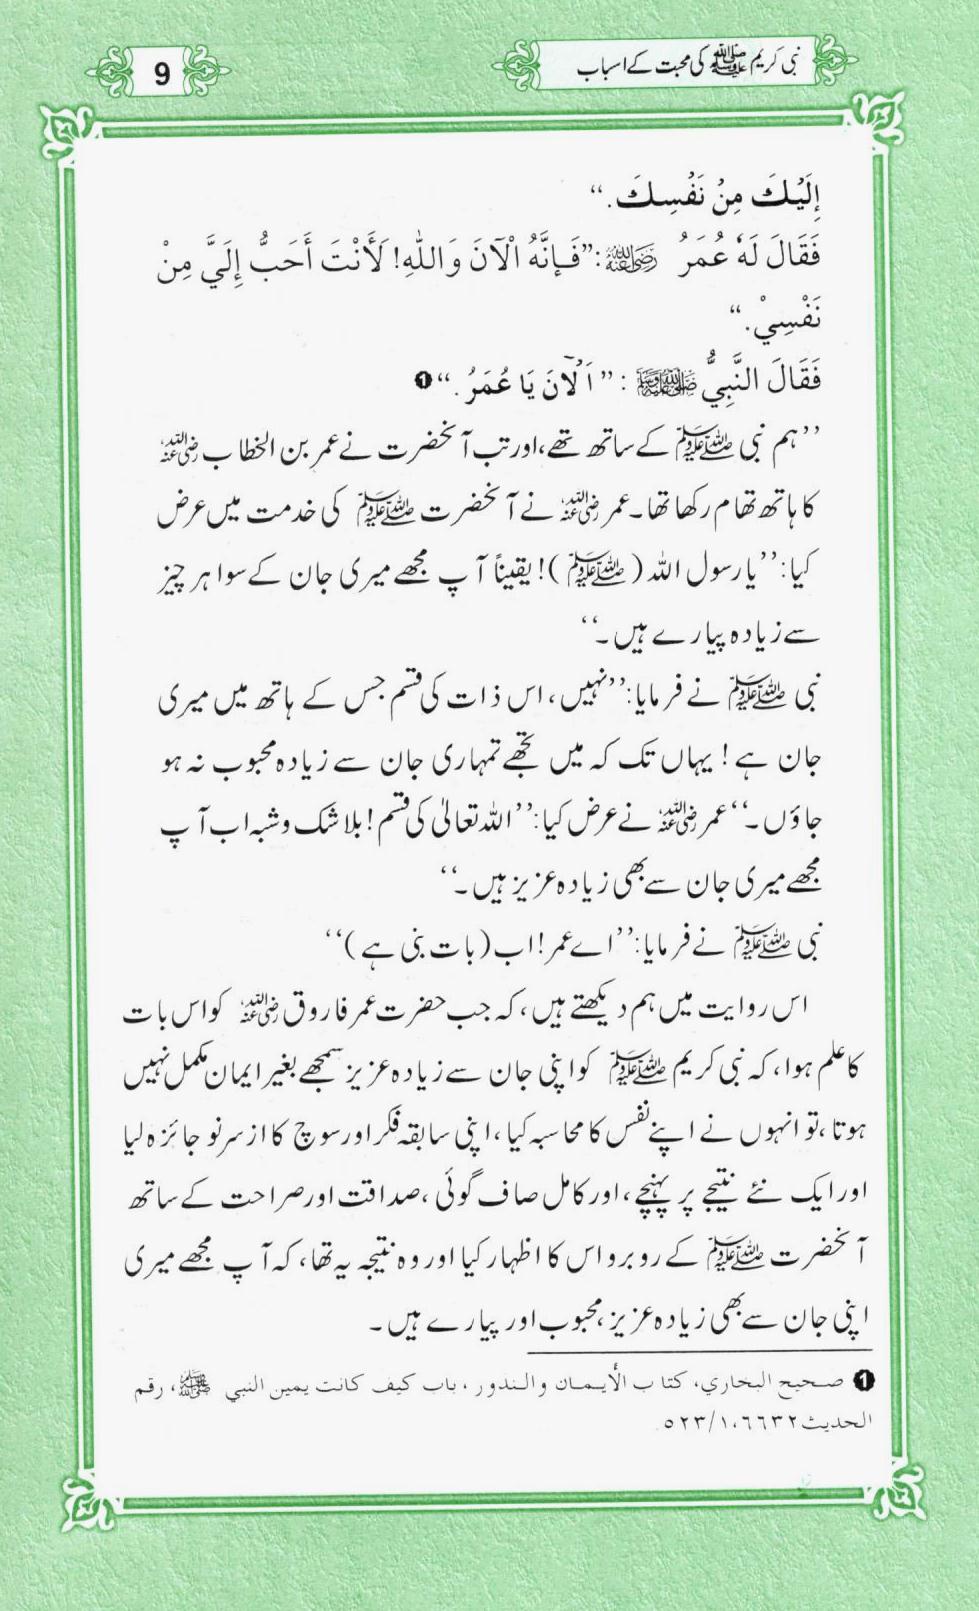 نبی کریم ﷺ کی محبت کے اسباب
9
إِلَيْكَ مِنْ نَفْسِكَ.“
فَقَالَ لَهٗ عُمَرُ رضی اللہ عنہ :”فَإِنَّهُ الْآنَ وَاللّٰهِ! لَأَنْتَ أَحَبُّ إِلَيَّ مِنْ
نَفْسِيْ.“
فَقَالَ النَّبِيُّ ﷺ : ”اَلْآنَ يَا عُمَرُ.“❶
’’ہم نبی ﷺ کے ساتھ تھے،اور تب آنحضرت نے عمر بن الخطاب رضی اللہ عنہ
کا ہاتھ تھام رکھا تھا۔عمر رضی اللہ عنہ نے آنحضرت ﷺ کی خدمت میں عرض
کیا:’’یا رسول اللہ (ﷺ)! یقیناً آپ مجھے میری جان کے سوا ہر چیز
سے زیادہ پیارے ہیں۔‘‘
نبی ﷺ نے فرمایا:’’نہیں، اس ذات کی قسم جس کے ہاتھ میں میری
جان ہے! یہاں تک کہ میں تجھے تمہاری جان سے زیادہ محبوب نہ ہو
جاؤں۔‘‘عمر رضی اللہ عنہ نے عرض کیا:’’اللہ تعالیٰ کی قسم! بلا شک و شبہ اب آپ
مجھے میری جان سے بھی زیادہ عزیز ہیں۔‘‘
نبی ﷺ نے فرمایا:’’اے عمر! اب (بات بنی ہے)‘‘
اس روایت میں ہم دیکھتے ہیں، کہ جب حضرت عمر فاروق رضی اللہ عنہ کو اس بات
کا علم ہوا، کہ نبی کریم ﷺ کو اپنی جان سے زیادہ عزیز سمجھے بغیر ایمان مکمل نہیں
ہوتا،تو انہوں نے اپنے نفس کا محاسبہ کیا،اپنی سابقہ فکر اور سوچ کا از سر نو جائزہ لیا
اور ایک نئے نتیجے پر پہنچے،اور کامل صاف گوئی،صداقت اور صراحت کے ساتھ
آنحضرت ﷺ کے روبرو اس کا اظہار کیا اور وہ نتیجہ یہ تھا، کہ آپ مجھے میری
اپنی جان سے بھی زیادہ عزیز،محبوب اور پیارے ہیں۔
❶ صحيح البخاري، كتاب الأيمان والنذور، باب كيف كانت يمين النبي ﷺ، رقم
الحديث ٦٦٣٢، ١/٥٢٣.